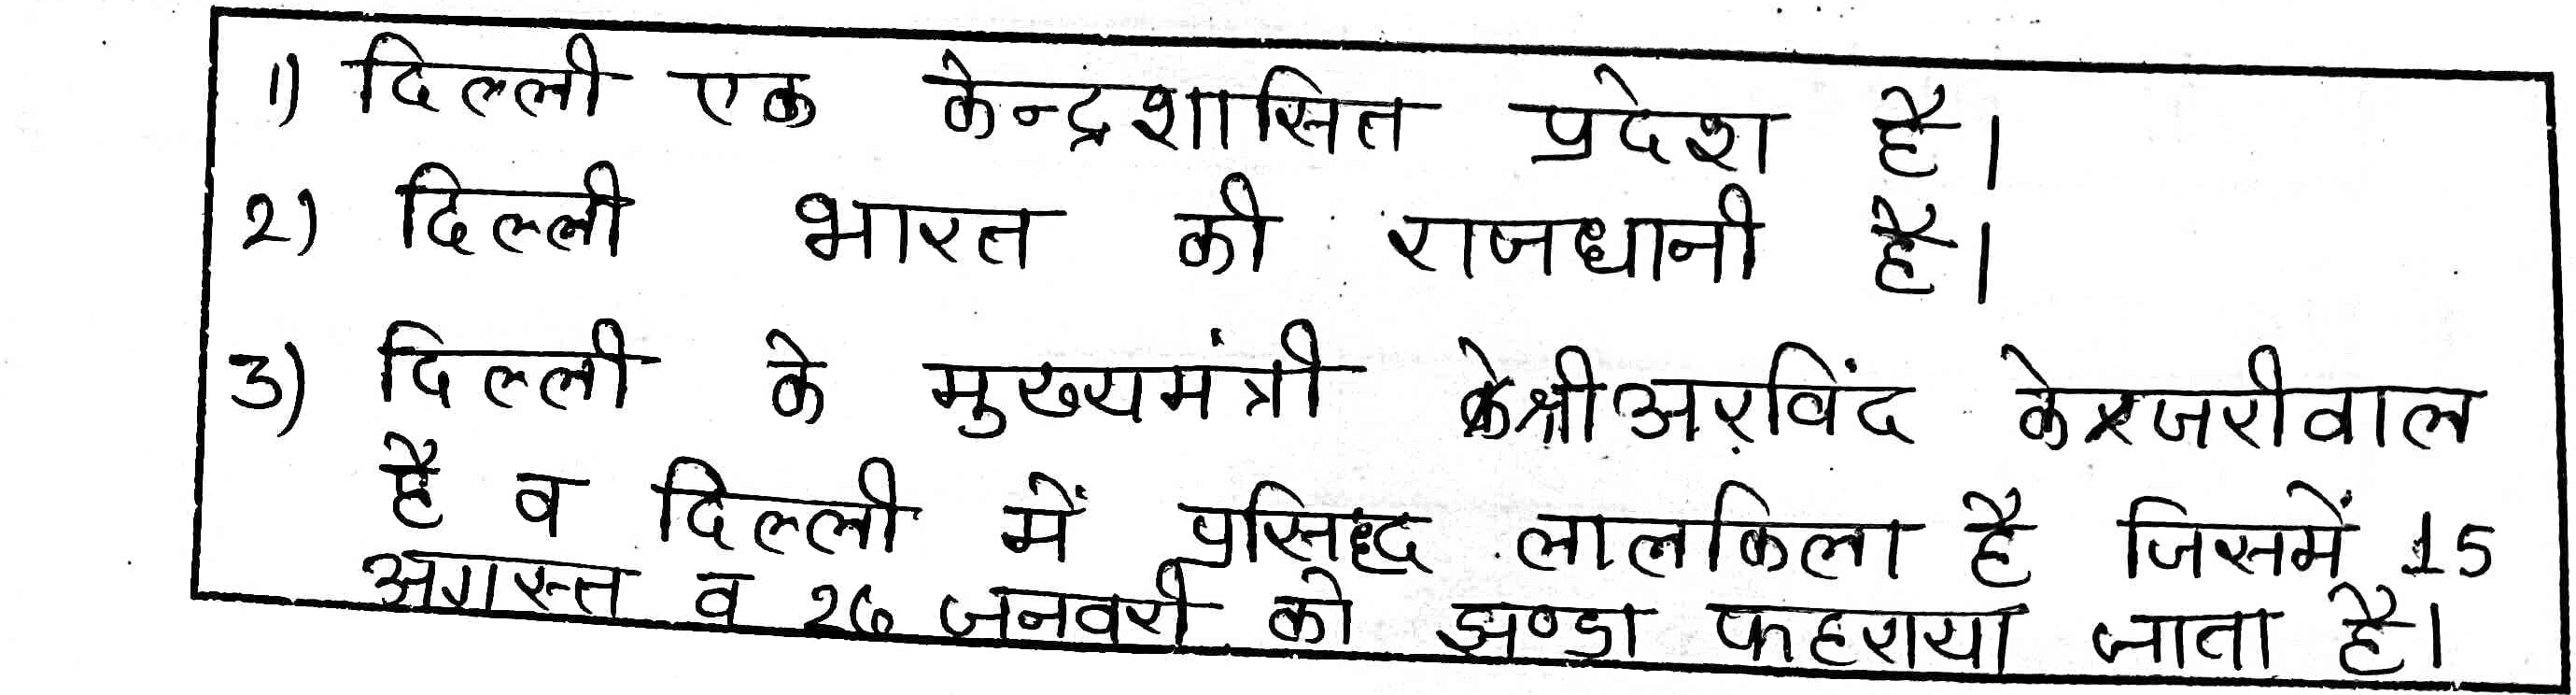 1) दिल्ली एक केन्द्रशासित प्रदेश है।
2) दिल्ली भारत की राजधानी है।
3) दिल्ली के मुख्यमंत्री श्री अरविंद केजरीवाल
है व दिल्ली में प्रसिद्ध लालकिला है जिसमें 15
अगस्त व 26 जनवरी को झण्डा फहराया जाता है।